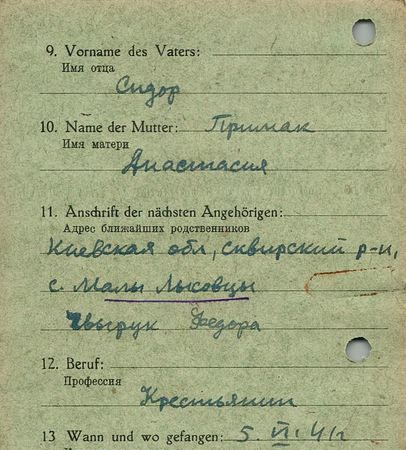 9. Vorname des Vaters:
Имя отца
Сидор
10. Name der Mutter: Примак
Имя матери
Анастасия
11. Anschrift der nächsten Angehörigen:
Адрес ближайших родственников
Киевская обл, сквирский р-н,
с. Малы Лысовцы
Федора
12. Beruf:
Профессия
Крестьянин
13 Wann und wo gefangen: 5. VI. 41 г